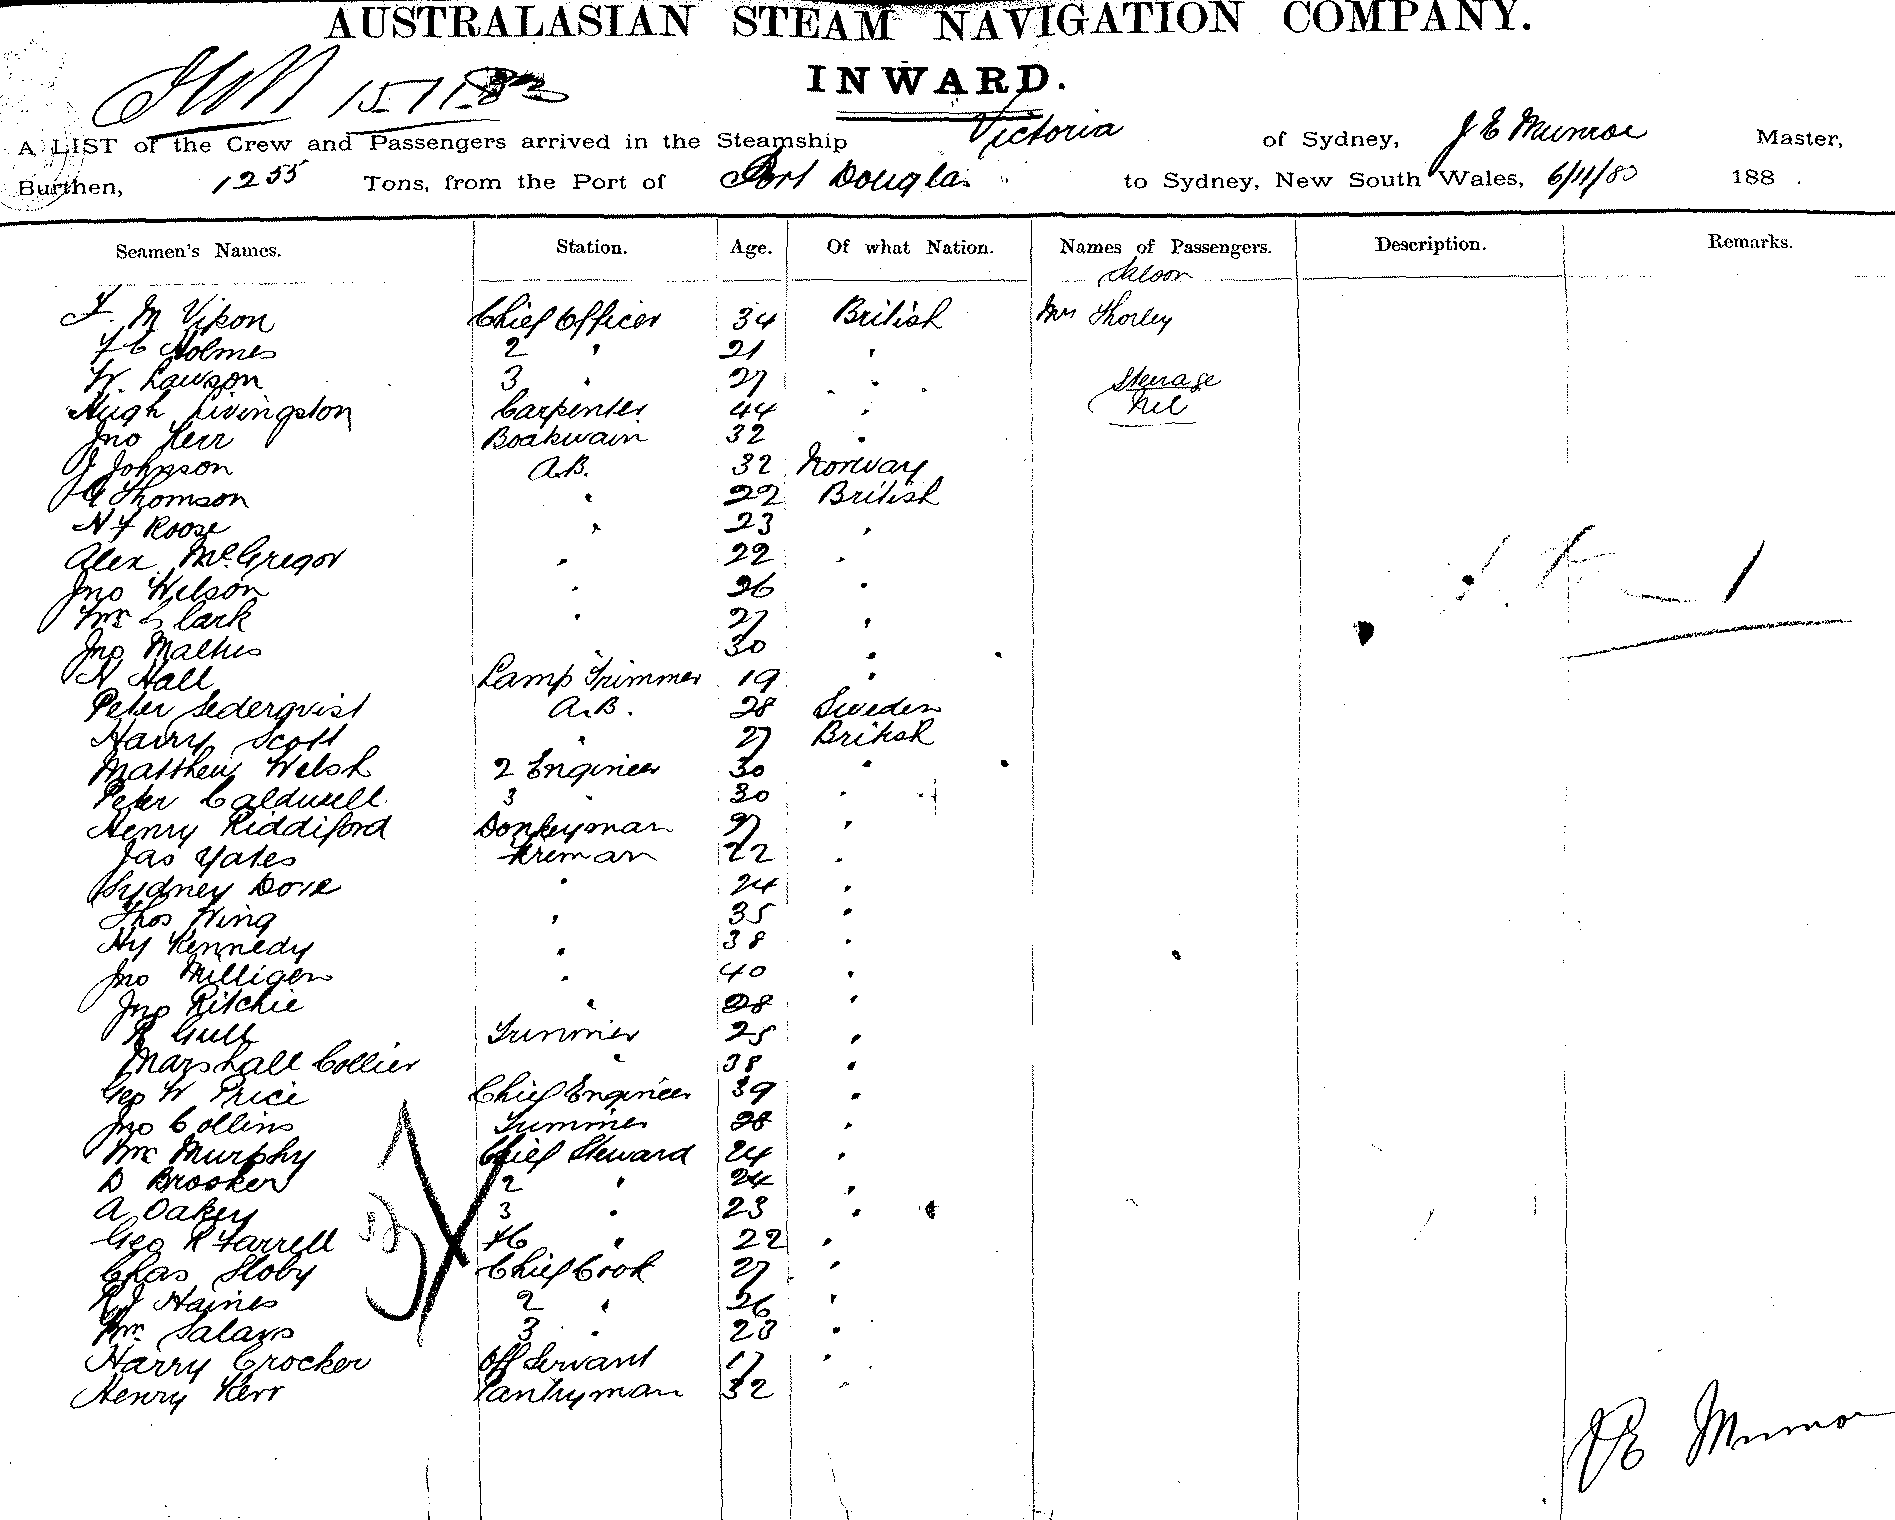 AUSTRALASIAN STEAM NAVIGATION COMPANY.
INWARD.
A LIST of the Crew and Passengers arrived in the Steamship Victoria of Sydney, J E Munroe Master,
Burthen, 1255 Tons, from the Port of Port Douglas to Sydney, New South Wales, 6/11/80 188 .
Seamen's Names. Station. Age. Of what Nation. Names of Passengers. Description. Remarks.
Saloon
F. M Vipon Chief Officer 34 British Mrs Thorley
F C Holmes 2 " 21 "
W. Lawson 3 " 27 " Steerage
Hugh Livingston Carpenter 44 " Nil
Jno Kerr Boatswain 32 "
J Johnson A.B. 32 Norway
G Thomson " 22 British
H F Roose " 23 "
Alex McGregor " 22 "
Jno Wilson " 26 "
Wm Clark " 27 "
Jno Mathis " 30 "
H Hall Lamp Trimmer 19 "
Peter Sederqvist A.B. 28 Sweden
Harry Scott " 27 British
Matthew Welsh 2 Engineer 30 "
Peter Caldwell 3 " 30 "
Henry Riddiford Donkeyman 27 "
Jas Yates Fireman 22 "
Sydney Dove " 24 "
Thos Wing " 35 "
Hy Kennedy " 38 "
Jno Milligen " 40 "
Jno Ritchie " 28 "
R Gull Trimmer 25 "
Marshall Collier " 38 "
Geo W Price Chief Engineer 39 "
Jno Collins Trimmer 28 "
Wm Murphy Chief Steward 24 "
D Brooker 2 " 24 "
A Oakey 3 " 23 "
Geo R Farrell " 22 "
Chas Sloby Chief Cook 27 "
R J Haines 2 " 26 "
Wm Salars 3 " 23 "
Harry Crocker Off Servant 17 "
Henry Kerr Pantryman 32 "
J E Munroe